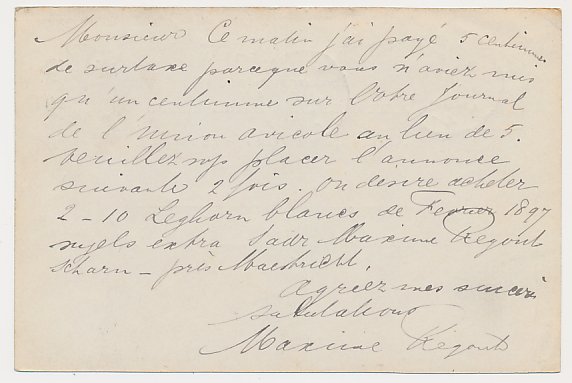 Monsieur Ce matin j'ai payé 5 centimes
de surtaxe parceque vous n'aviez mis
qu'un centimme sur l'Votre Journal
de l'Union avicole au lieu de 5.
veuillez placer l'annonce
suivante 2 fois. on desire acheter
2-10 Leghorn blancs de Fevrier 1897
sujets extra Maxime Regout
Scharn - près Maestricht.
agréez mes sincères
salutations
Maxime Regout